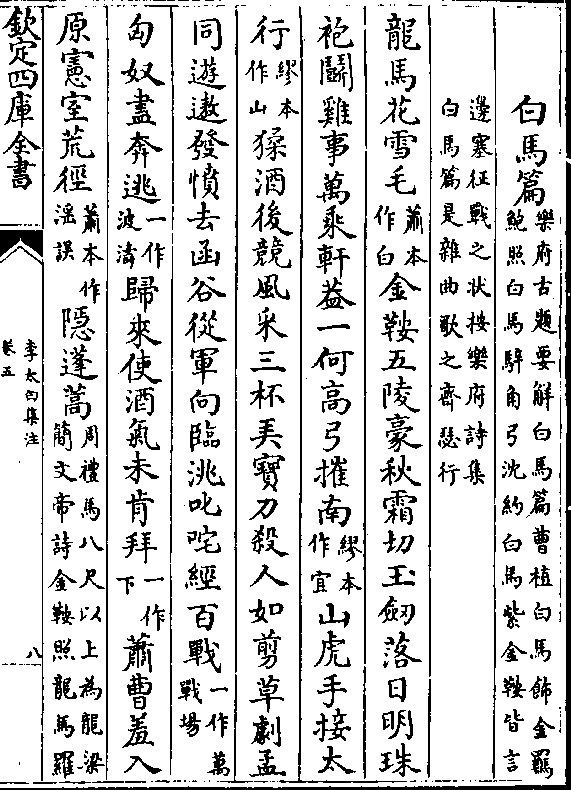 白馬篇樂府古題要解白馬篇曹植白馬飾金羈鮑照白馬騂角弓沈約白馬紫金鞍皆言
邊塞征戰之狀按樂府詩集白馬篇是雜曲歌之齊瑟行
龍馬花雪毛蕭本作白金鞍五陵豪秋霜切玉劒落日明珠
袍鬬雞事萬乘軒葢一何高弓摧南繆本作宜山虎手接太
行繆本作山猱酒後競風采三杯弄寶刀殺人如剪草劇孟
同遊遨發憤去函谷從軍向臨洮叱咤經百戰一作萬戰場
匈奴盡奔逃一作波濤歸來使酒氣未肯拜一作下蕭曹羞入
原憲室荒徑蕭本作滛誤隱蓬蒿周禮馬八尺以上為龍梁簡文帝詩金鞍照龍馬羅
欽定四庫全書
李太白集注
卷五
八